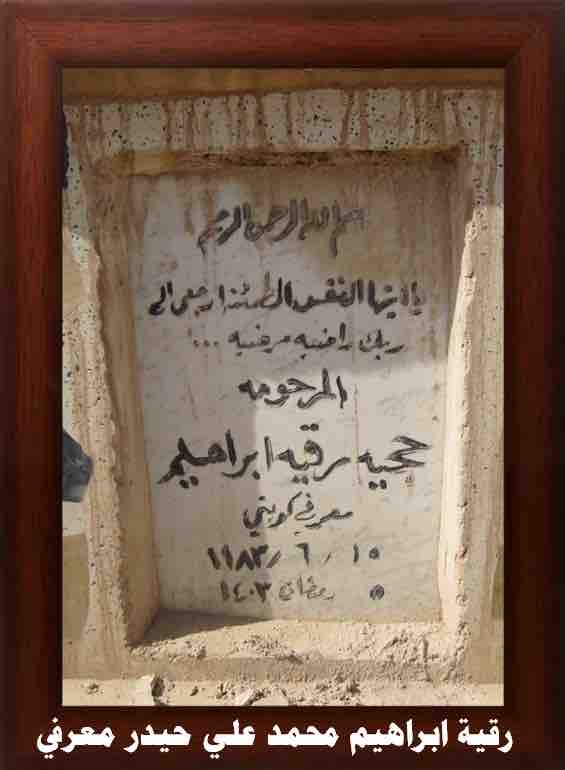 بسم الله الرحمن الرحيم
يا ايتها النفس المطمئنه ارجعي الى
ربك راضيه مرضيه ...
المرحومه
حجيه رقيه ابراهيم
معرفي كويتي
١٥ / ٦ / ١٩٨٣
٥ رمضان ١٤٠٣
رقية ابراهيم محمد علي حيدر معرفي